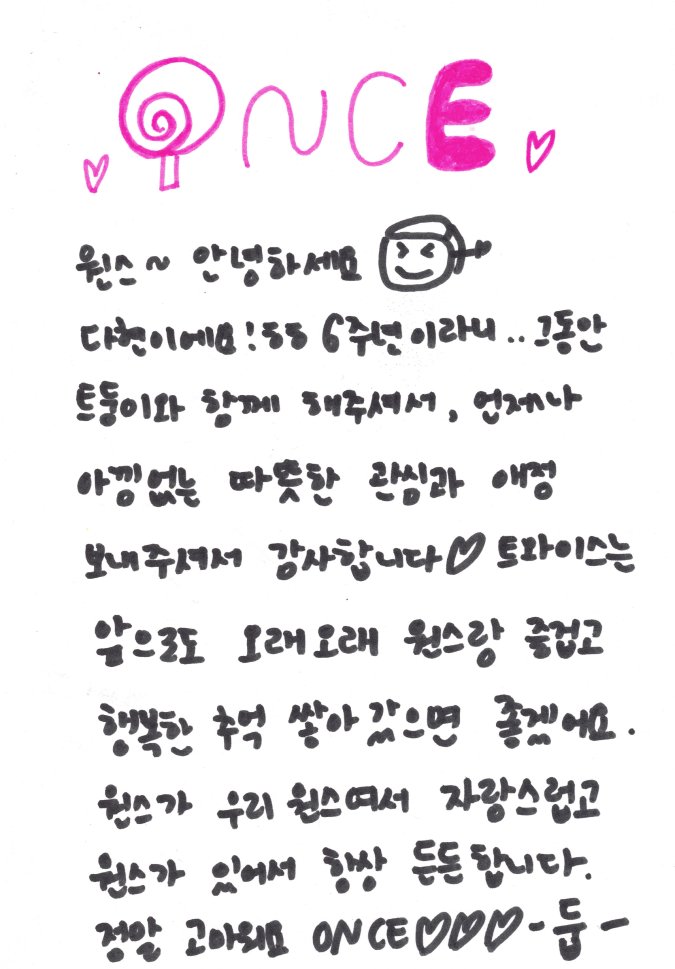 ONCE
원스~ 안녕하세요
다현이에요! ㅎㅎ 6주년이라니.. 그동안
트둥이와 함께 해주셔서, 언제나
아낌없는 따뜻한 관심과 애정
보내주셔서 감사합니다♡ 트와이스는
앞으로도 오래오래 원스랑 즐겁고
행복한 추억 쌓아갔으면 좋겠어요.
원스가 우리 원스여서 자랑스럽고
원스가 있어서 항상 든든합니다.
정말 고마워요 ONCE♡♡♡ -둡-